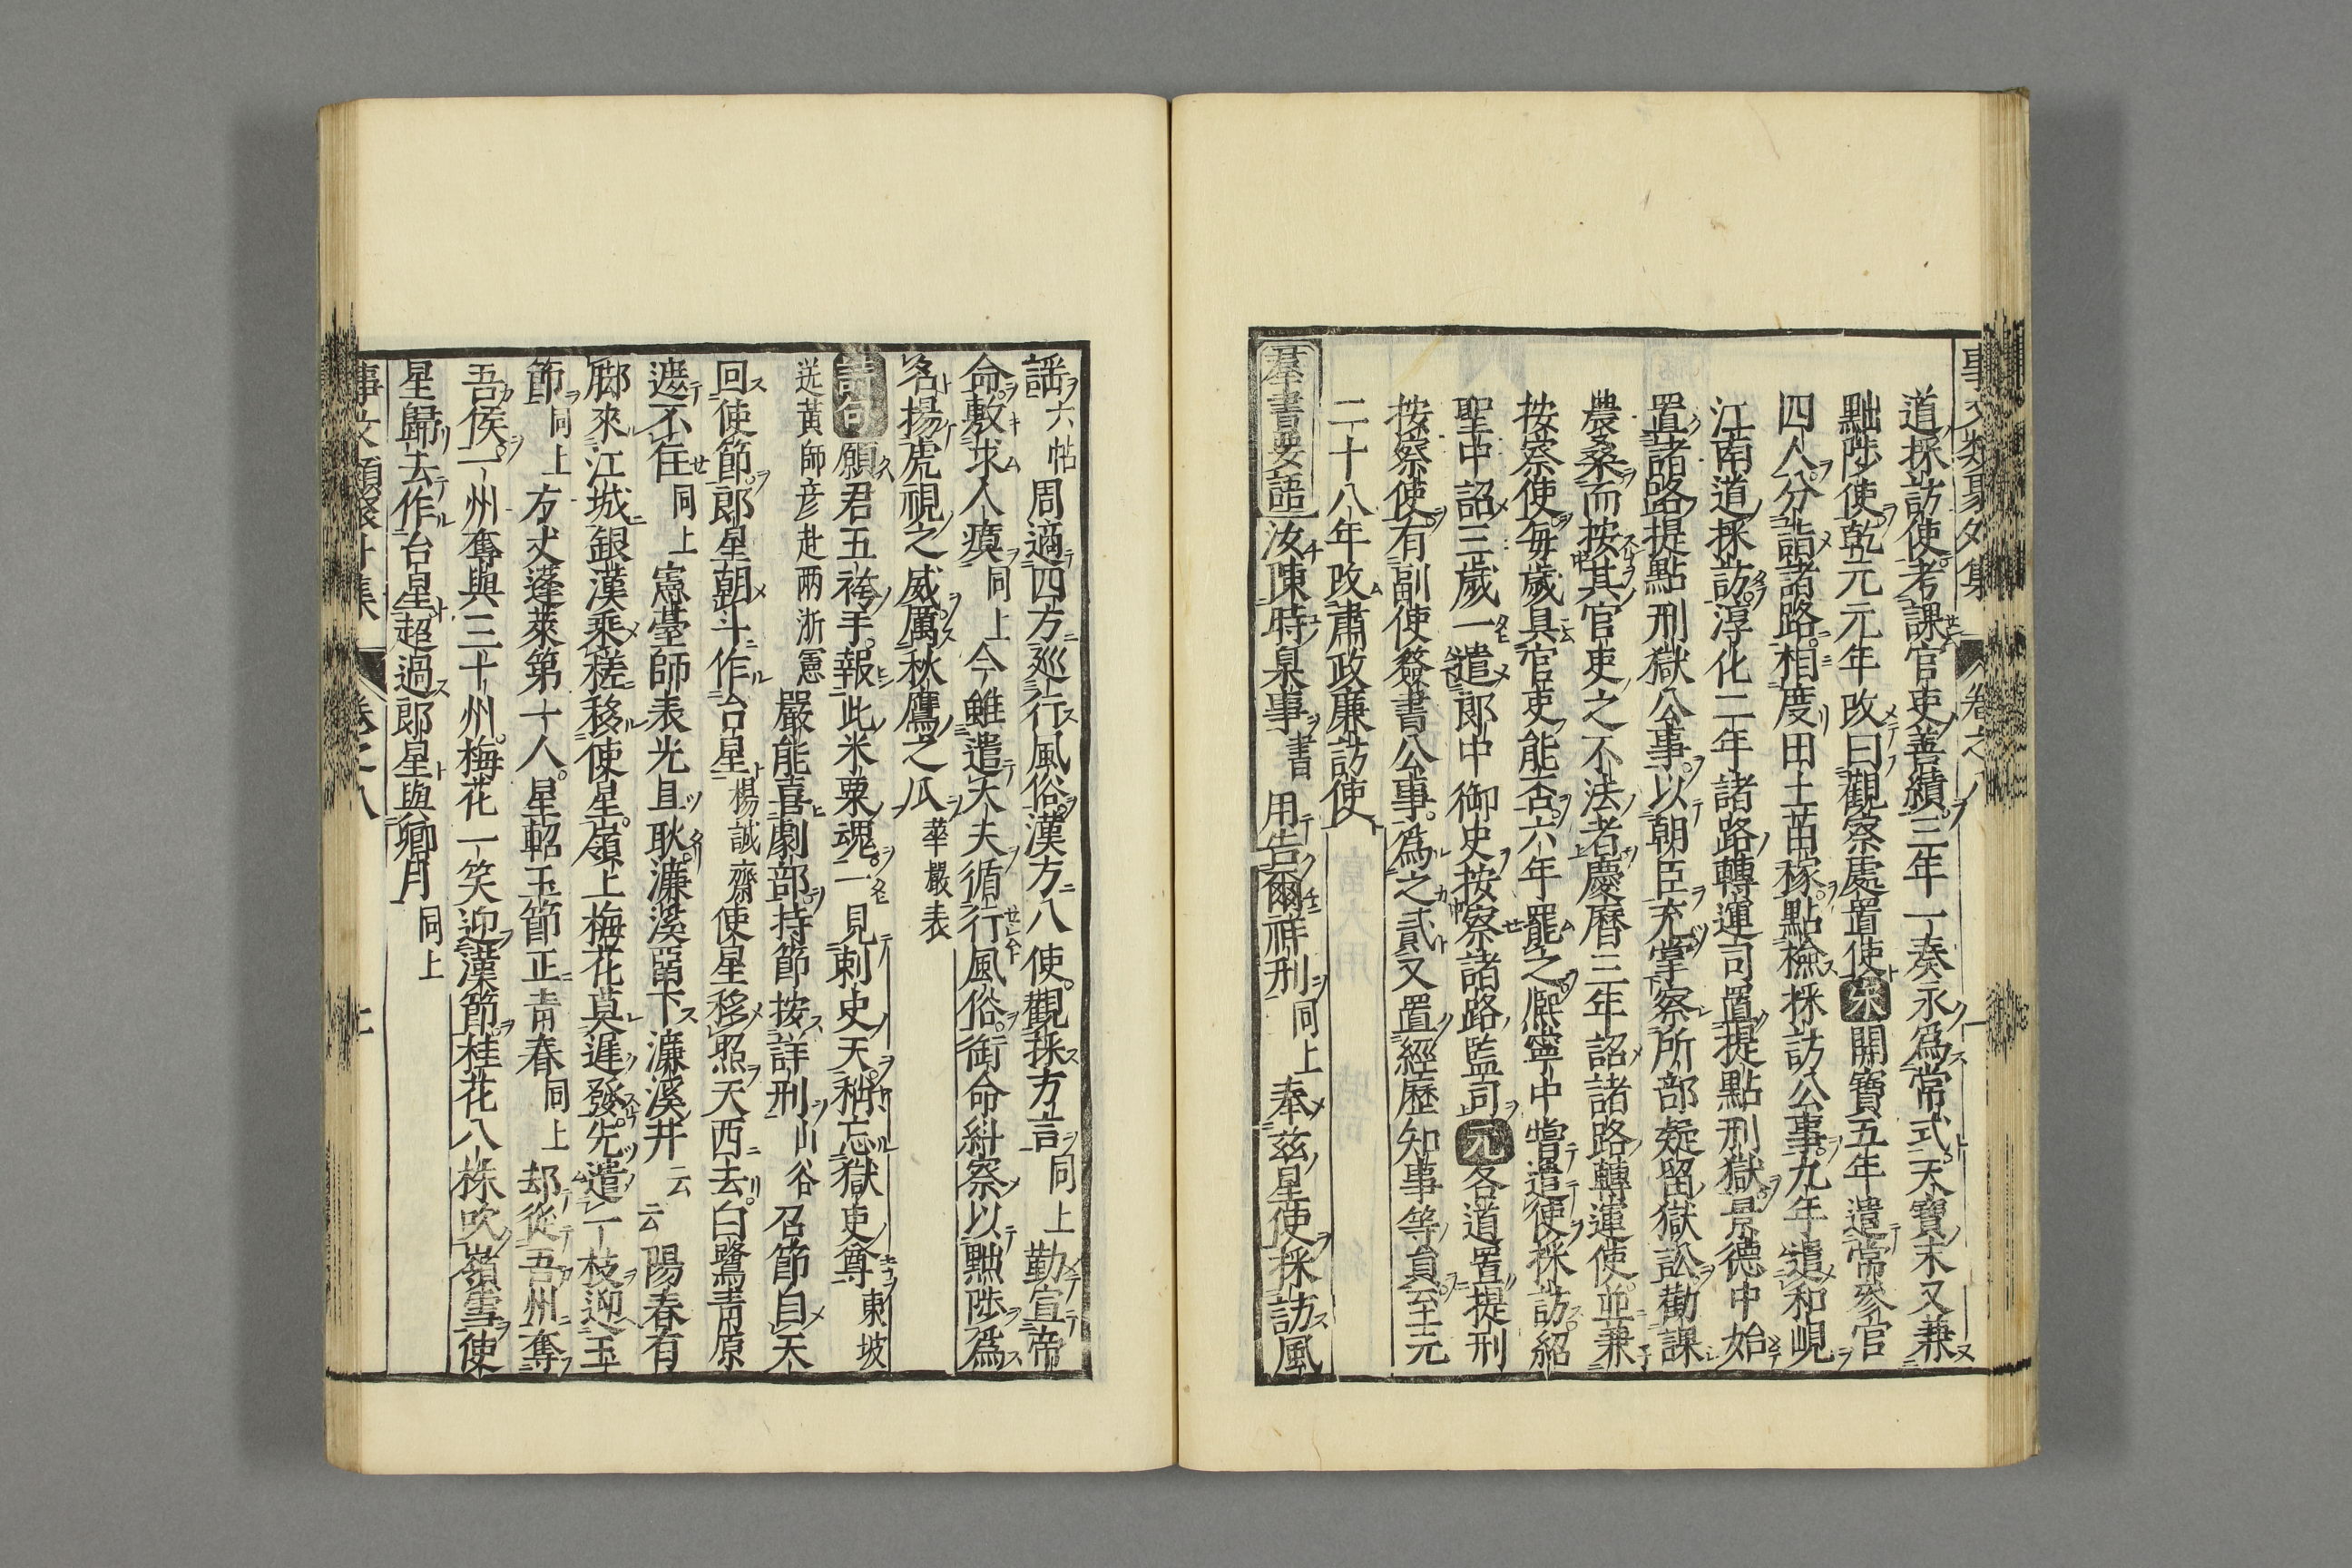 事文類聚外集 卷之八
道採訪使考課官吏善績三年一奏永爲常式天寶末又兼
黜陟使乾元元年改曰觀察處置使宋開寶五年遣常參官
四人分詣諸路相度田土苗稼點檢採訪公事九年遣和峴
江南道採訪淳化二年諸路轉運司置提點刑獄景德中始
置諸路提點刑獄公事以朝臣充掌察所部疑留獄訟勸課
農桑而按其官吏之不法者慶曆三年詔諸路轉運使並兼
按察使每歲具官吏能否六年罷之熙寧中嘗遣使採訪紹
聖中詔三歲一遣郎中御史按察諸路監司元各道置提刑
按察使有副使簽書公事爲之貳又置經歷知事等員至元
二十八年改肅政廉訪使
羣書要語汝陳時臬事書用告爾祥刑同上奉茲星使採訪風
謠六帖周適四方巡行風俗漢方八使觀採方言同上勤宣帝
命敷求人瘼同上今雖遣大夫循行風俗銜命糾察以黜陟爲
名揚虎視之威厲秋鷹之瓜華嚴表
詩句願君五袴手報此米粟魂二見刺史天稍忘獄吏尊東坡
送黃師彦赴兩浙憲嚴能喜劇部持節按詳刑山谷召節自天
回使節郎星朝斗作台星楊誠齋使星移照天西去白鷺青原
遮不住同上憲臺師表光且耿濂溪留下濂溪井云云陽春有
脚來江城銀漢乘槎移使星嶺上梅花莫遲發先遣一枝迎玉
節同上方丈蓬萊第十人星軺玉節正青春同上却從吾州奪
吾侯一州奪與三十州梅花一笑迎漢節桂花八株吹嶺雪使
星歸去作台星超過郎星與卿月同上
事文類聚外集 卷之八